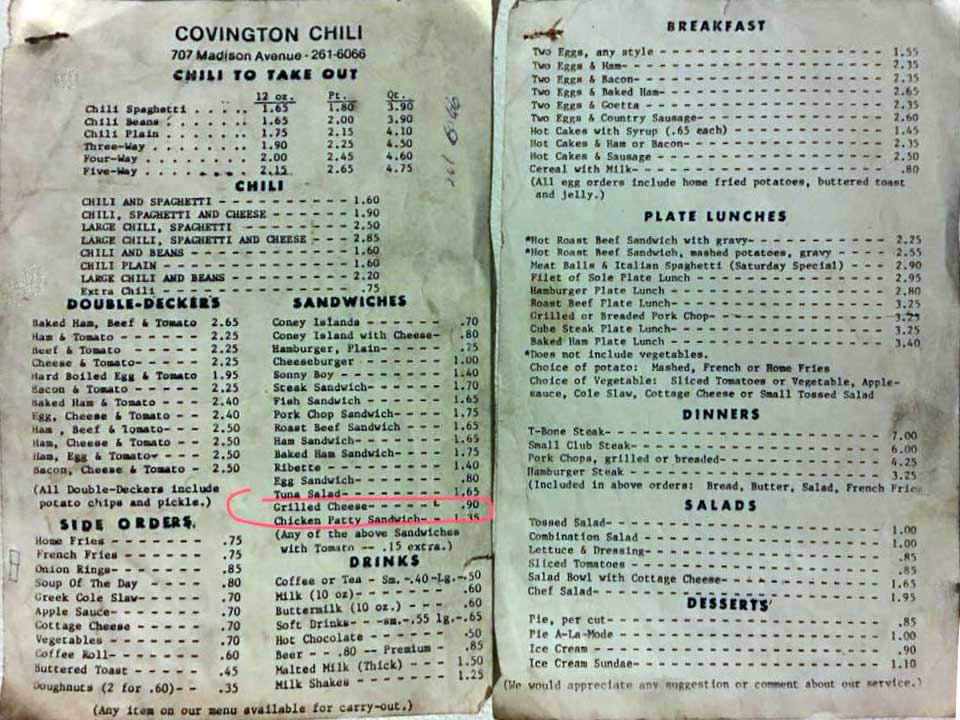 COVINGTON CHILI
707 Madison Avenue · 261-6066
CHILI TO TAKE OUT
12 oz. Pt. Qt.
Chili Spaghetti . . . . . . 1.65 1.80 3.90
Chili Beans . . . . . . . 1.65 2.00 3.90
Chili Plain . . . . . . . 1.75 2.15 4.10
Three-Way . . . . . . . . 1.90 2.25 4.50
Four-Way . . . . . . . . 2.00 2.45 4.60
Five-Way . . . . . . . . 2.15 2.65 4.75
CHILI
CHILI AND SPAGHETTI - - - - - - - - - - - 1.60
CHILI, SPAGHETTI AND CHEESE - - - - - - - 1.90
LARGE CHILI, SPAGHETTI - - - - - - - - - 2.50
LARGE CHILI, SPAGHETTI AND CHEESE - - - - 2.85
CHILI AND BEANS - - - - - - - - - - - - - 1.60
CHILI PLAIN - - - - - - - - - - - - - - - 1.60
LARGE CHILI AND BEANS - - - - - - - - - - 2.20
Extra Chili - - - - - - - - - - - - - - - .75
DOUBLE-DECKERS
Baked Ham, Beef & Tomato 2.65
Ham & Tomato - - - - - - 2.25
Beef & Tomato - - - - - 2.25
Cheese & Tomato- - - - - 2.25
Hard Boiled Egg & Tomato 1.95
Bacon & Tomato - - - - - 2.25
Baked Ham & Tomato - - - 2.40
Egg, Cheese & Tomato - - 2.40
Ham , Beef & Tomato- - - 2.50
Ham, Cheese & Tomato - - 2.50
Ham, Egg & Tomato- - - - 2.50
Bacon, Cheese & Tomato - 2.50
(All Double-Deckers include
potato chips and pickle.)
SIDE ORDERS
Home Fries - - - - - .75
French Fries - - - - .75
Onion Rings- - - - - .85
Soup Of The Day - - - .80
Greek Cole Slaw- - - .70
Apple Sauce- - - - - .70
Cottage Cheese - - - .70
Vegetables - - - - - .70
Coffee Roll- - - - - .60
Buttered Toast - - - .45
Doughnuts (2 for .60)- - .35
SANDWICHES
Coney Islands - - - - - - - .70
Coney Island with Cheese- - .80
Hamburger, Plain- - - - - - .75
Cheeseburger - - - - - - - 1.00
Sonny Boy - - - - - - - - - 1.40
Steak Sandwich- - - - - - - 1.70
Fish Sandwich - - - - - - - 1.65
Pork Chop Sandwich- - - - - 1.75
Roast Beef Sandwich - - - - 1.65
Ham Sandwich- - - - - - - - 1.65
Baked Ham Sandwich- - - - - 1.75
Ribette - - - - - - - - - - 1.40
Egg Sandwich- - - - - - - - .80
Tuna Salad- - - - - - - - - 1.65
Grilled Cheese- - - - - - - .90
Chicken Patty Sandwich- - - 1.35
(Any of the above Sandwiches
with Tomato -- .15 extra.)
DRINKS
Coffee or Tea - Sm. -.40-Lg.-.50
Milk (10 oz)- - - - - - - .60
Buttermilk (10 oz.) - - - .60
Soft Drinks- - -sm.-.55 lg.-.65
Hot Chocolate - - - - - - .50
Beer - - .80 -- Premium - .85
Malted Milk (Thick) - - - 1.50
Milk Shakes - - - - - - - 1.25
(Any item on our menu available for carry-out.)
BREAKFAST
Two Eggs, any style - - - - - - - - - - 1.55
Two Eggs & Ham- - - - - - - - - - - - - 2.35
Two Eggs & Bacon- - - - - - - - - - - - 2.35
Two Eggs & Baked Ham- - - - - - - - - - 2.65
Two Eggs & Goetta - - - - - - - - - - - 2.35
Two Eggs & Country Sausage- - - - - - - 2.60
Hot Cakes with Syrup (.65 each) - - - - 1.45
Hot Cakes & Ham or Bacon- - - - - - - - 2.35
Hot Cakes & Sausage - - - - - - - - - - 2.50
Cereal with Milk- - - - - - - - - - - - .80
(All egg orders include home fried potatoes, buttered toast
and jelly.)
PLATE LUNCHES
*Hot Roast Beef Sandwich with gravy- - - - - - - 2.25
*Hot Roast Beef Sandwich, mashed potatoes, gravy - 2.55
Meat Balls & Italian Spaghetti (Saturday Special) - 2.90
Filet of Sole Plate Lunch - - - - - - - - 2.95
Hamburger Plate Lunch - - - - - - - - - - 2.80
Roast Beef Plate Lunch- - - - - - - - - - 3.25
Grilled or Breaded Pork Chop- - - - - - - 3.25
Cube Steak Plate Lunch- - - - - - - - - - 3.25
Baked Ham Plate Lunch - - - - - - - - - - 3.40
*Does not include vegetables.
Choice of potato: Mashed, French or Home Fries
Choice of Vegetable: Sliced Tomatoes or Vegetable, Apple-
sauce, Cole Slaw, Cottage Cheese or Small Tossed Salad
DINNERS
T-Bone Steak- - - - - - - - - - - - - - 7.00
Small Club Steak- - - - - - - - - - - - 6.00
Pork Chops, grilled or breaded- - - - - 4.25
Hamburger Steak - - - - - - - - - - - - 3.25
(Included in above orders: Bread, Butter, Salad, French Fries
SALADS
Tossed Salad- - - - - - - - - - - - - - 1.00
Combination Salad - - - - - - - - - - - 1.00
Lettuce & Dressing- - - - - - - - - - - .85
Sliced Tomatoes - - - - - - - - - - - - .85
Salad Bowl with Cottage Cheese- - - - - 1.65
Chef Salad- - - - - - - - - - - - - - - 1.95
DESSERTS
Pie, per cut- - - - - - - - - - - - - - .85
Pie A-La-Mode - - - - - - - - - - - - - 1.00
Ice Cream - - - - - - - - - - - - - - - .90
Ice Cream Sundae- - - - - - - - - - - - 1.10
(We would appreciate any suggestion or comment about our service.)